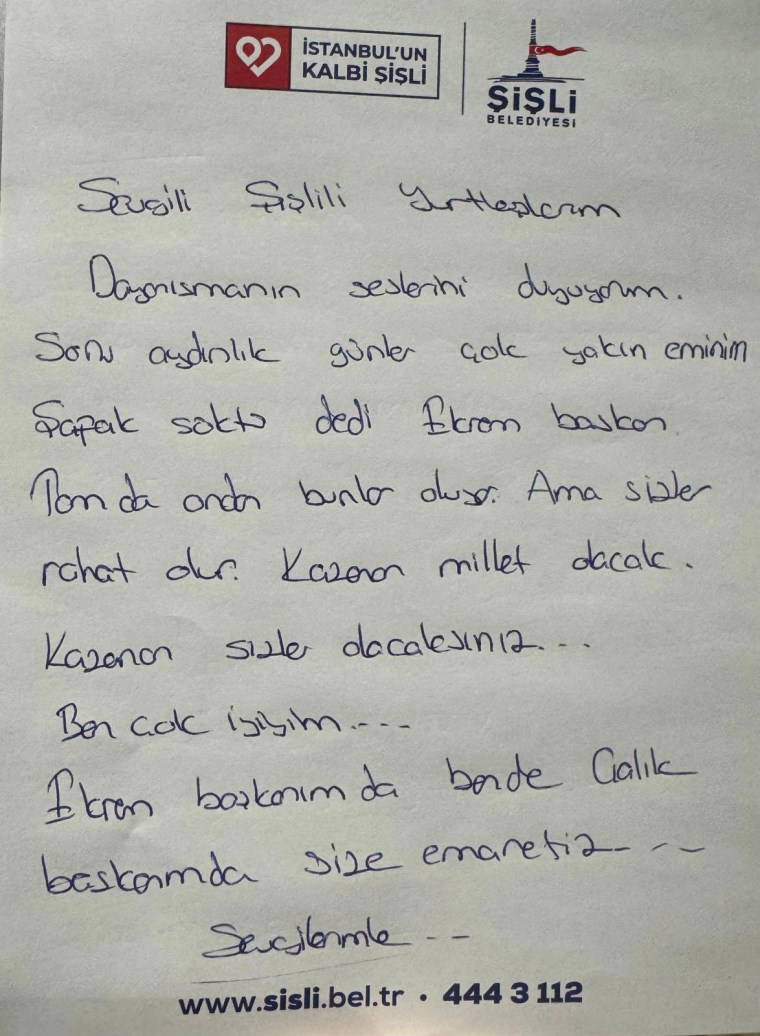 İSTANBUL'UN
KALBİ ŞİŞLİ
ŞİŞLİ
BELEDİYESİ
Sevgili Şişlili Yurttaşlarım
Dayanışmanın seslerini duyuyorum.
Sonu aydınlık günler çok yakın eminim
Şafak söktü dedi Ekrem başkan
Tam da ondan bunlar oluyor. Ama sizler
rahat olun. Kazanan millet olacak.
Kazanan sizler olacaksınız...
Ben çok iyiyim....
Ekrem başkanım da bende Çalık
başkanımda size emanetiz---
Sevgilerimle --
www.sisli.bel.tr • 444 3 112